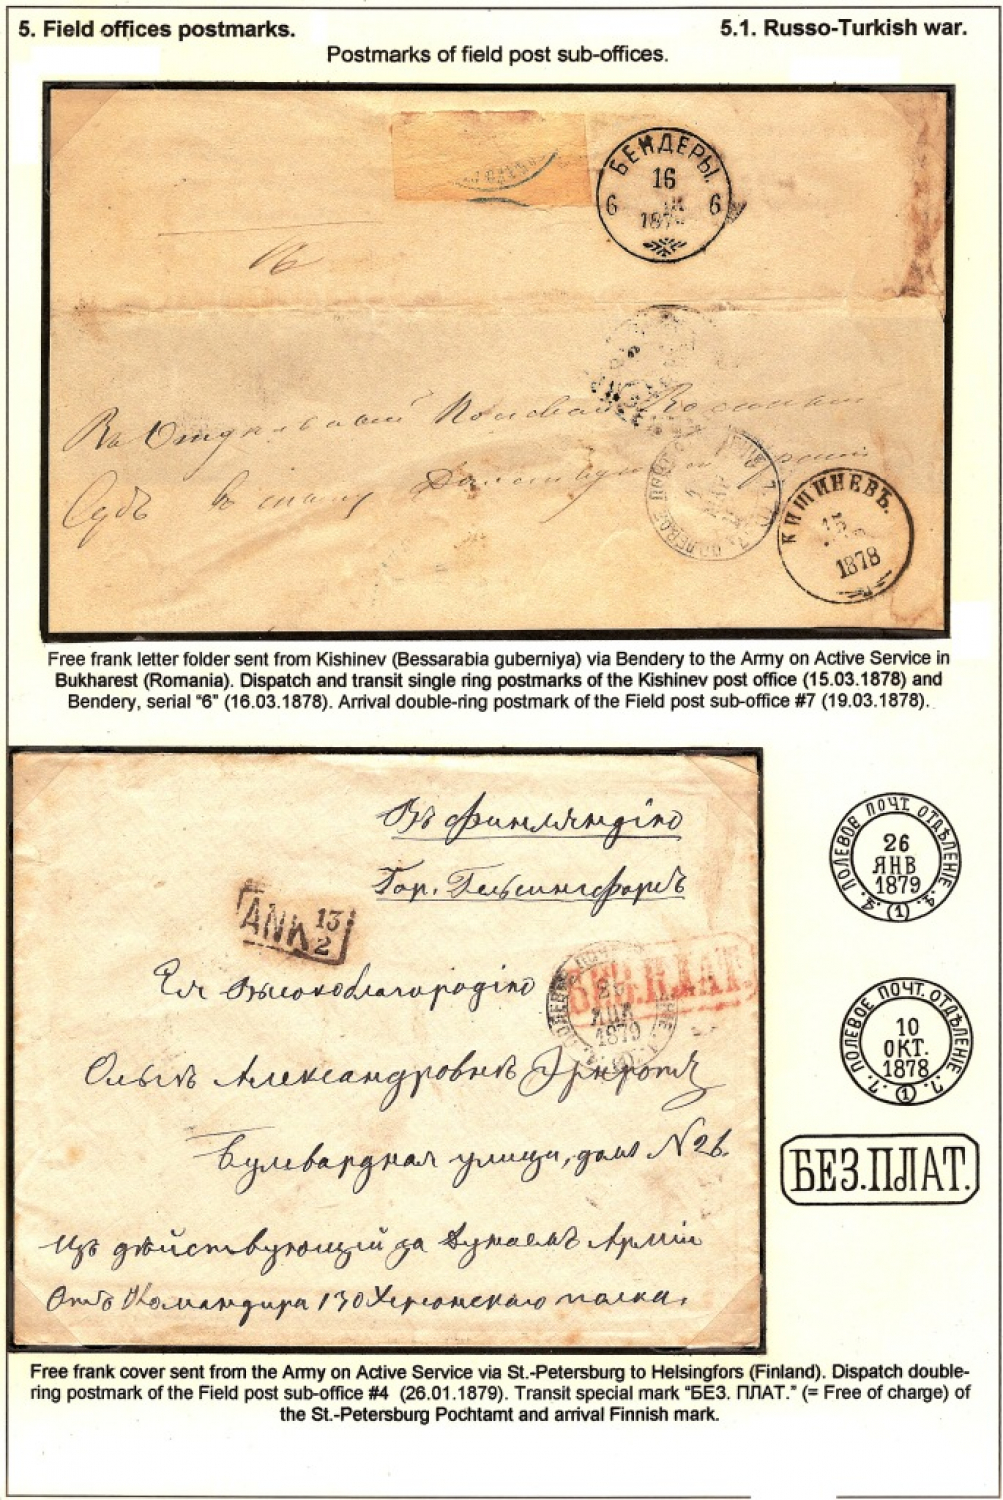 5. Field offices postmarks.
5.1. Russo-Turkish war.
Postmarks of field post sub-offices.
БЕНДЕРЫ.
16
III
6 6
187
Въ
Судъ въ
КИШИНЕВЪ.
15
1878
Free frank letter folder sent from Kishinev (Bessarabia guberniya) via Bendery to the Army on Active Service in
Bukharest (Romania). Dispatch and transit single ring postmarks of the Kishinev post office (15.03.1878) and
Bendery, serial "6" (16.03.1878). Arrival double-ring postmark of the Field post sub-office #7 (19.03.1878).
Въ Финляндію
Гор. Гельсингфорсъ
ANK 13/2
БЕЗ.ПЛАТ.
1879
Ея Высокоблагородію
Ольгѣ Александровнѣ
Бульвардная улица, домъ N 26.
Изъ дѣйствующей за Дунаемъ Арміи
Отъ Командира 130 Херсонскаго полка.
ПОЛЕВОЕ ПОЧТ. ОТДѢЛЕНІЕ
26
ЯНВ
1879
.4. (1) .4.
ПОЛЕВОЕ ПОЧТ. ОТДѢЛЕНІЕ
10
ОКТ.
1878
.7. (1) .7.
БЕЗ.ПЛАТ.
Free frank cover sent from the Army on Active Service via St.-Petersburg to Helsingfors (Finland). Dispatch double-
ring postmark of the Field post sub-office #4 (26.01.1879). Transit special mark "БЕЗ. ПЛАТ." (= Free of charge) of
the St.-Petersburg Pochtamt and arrival Finnish mark.